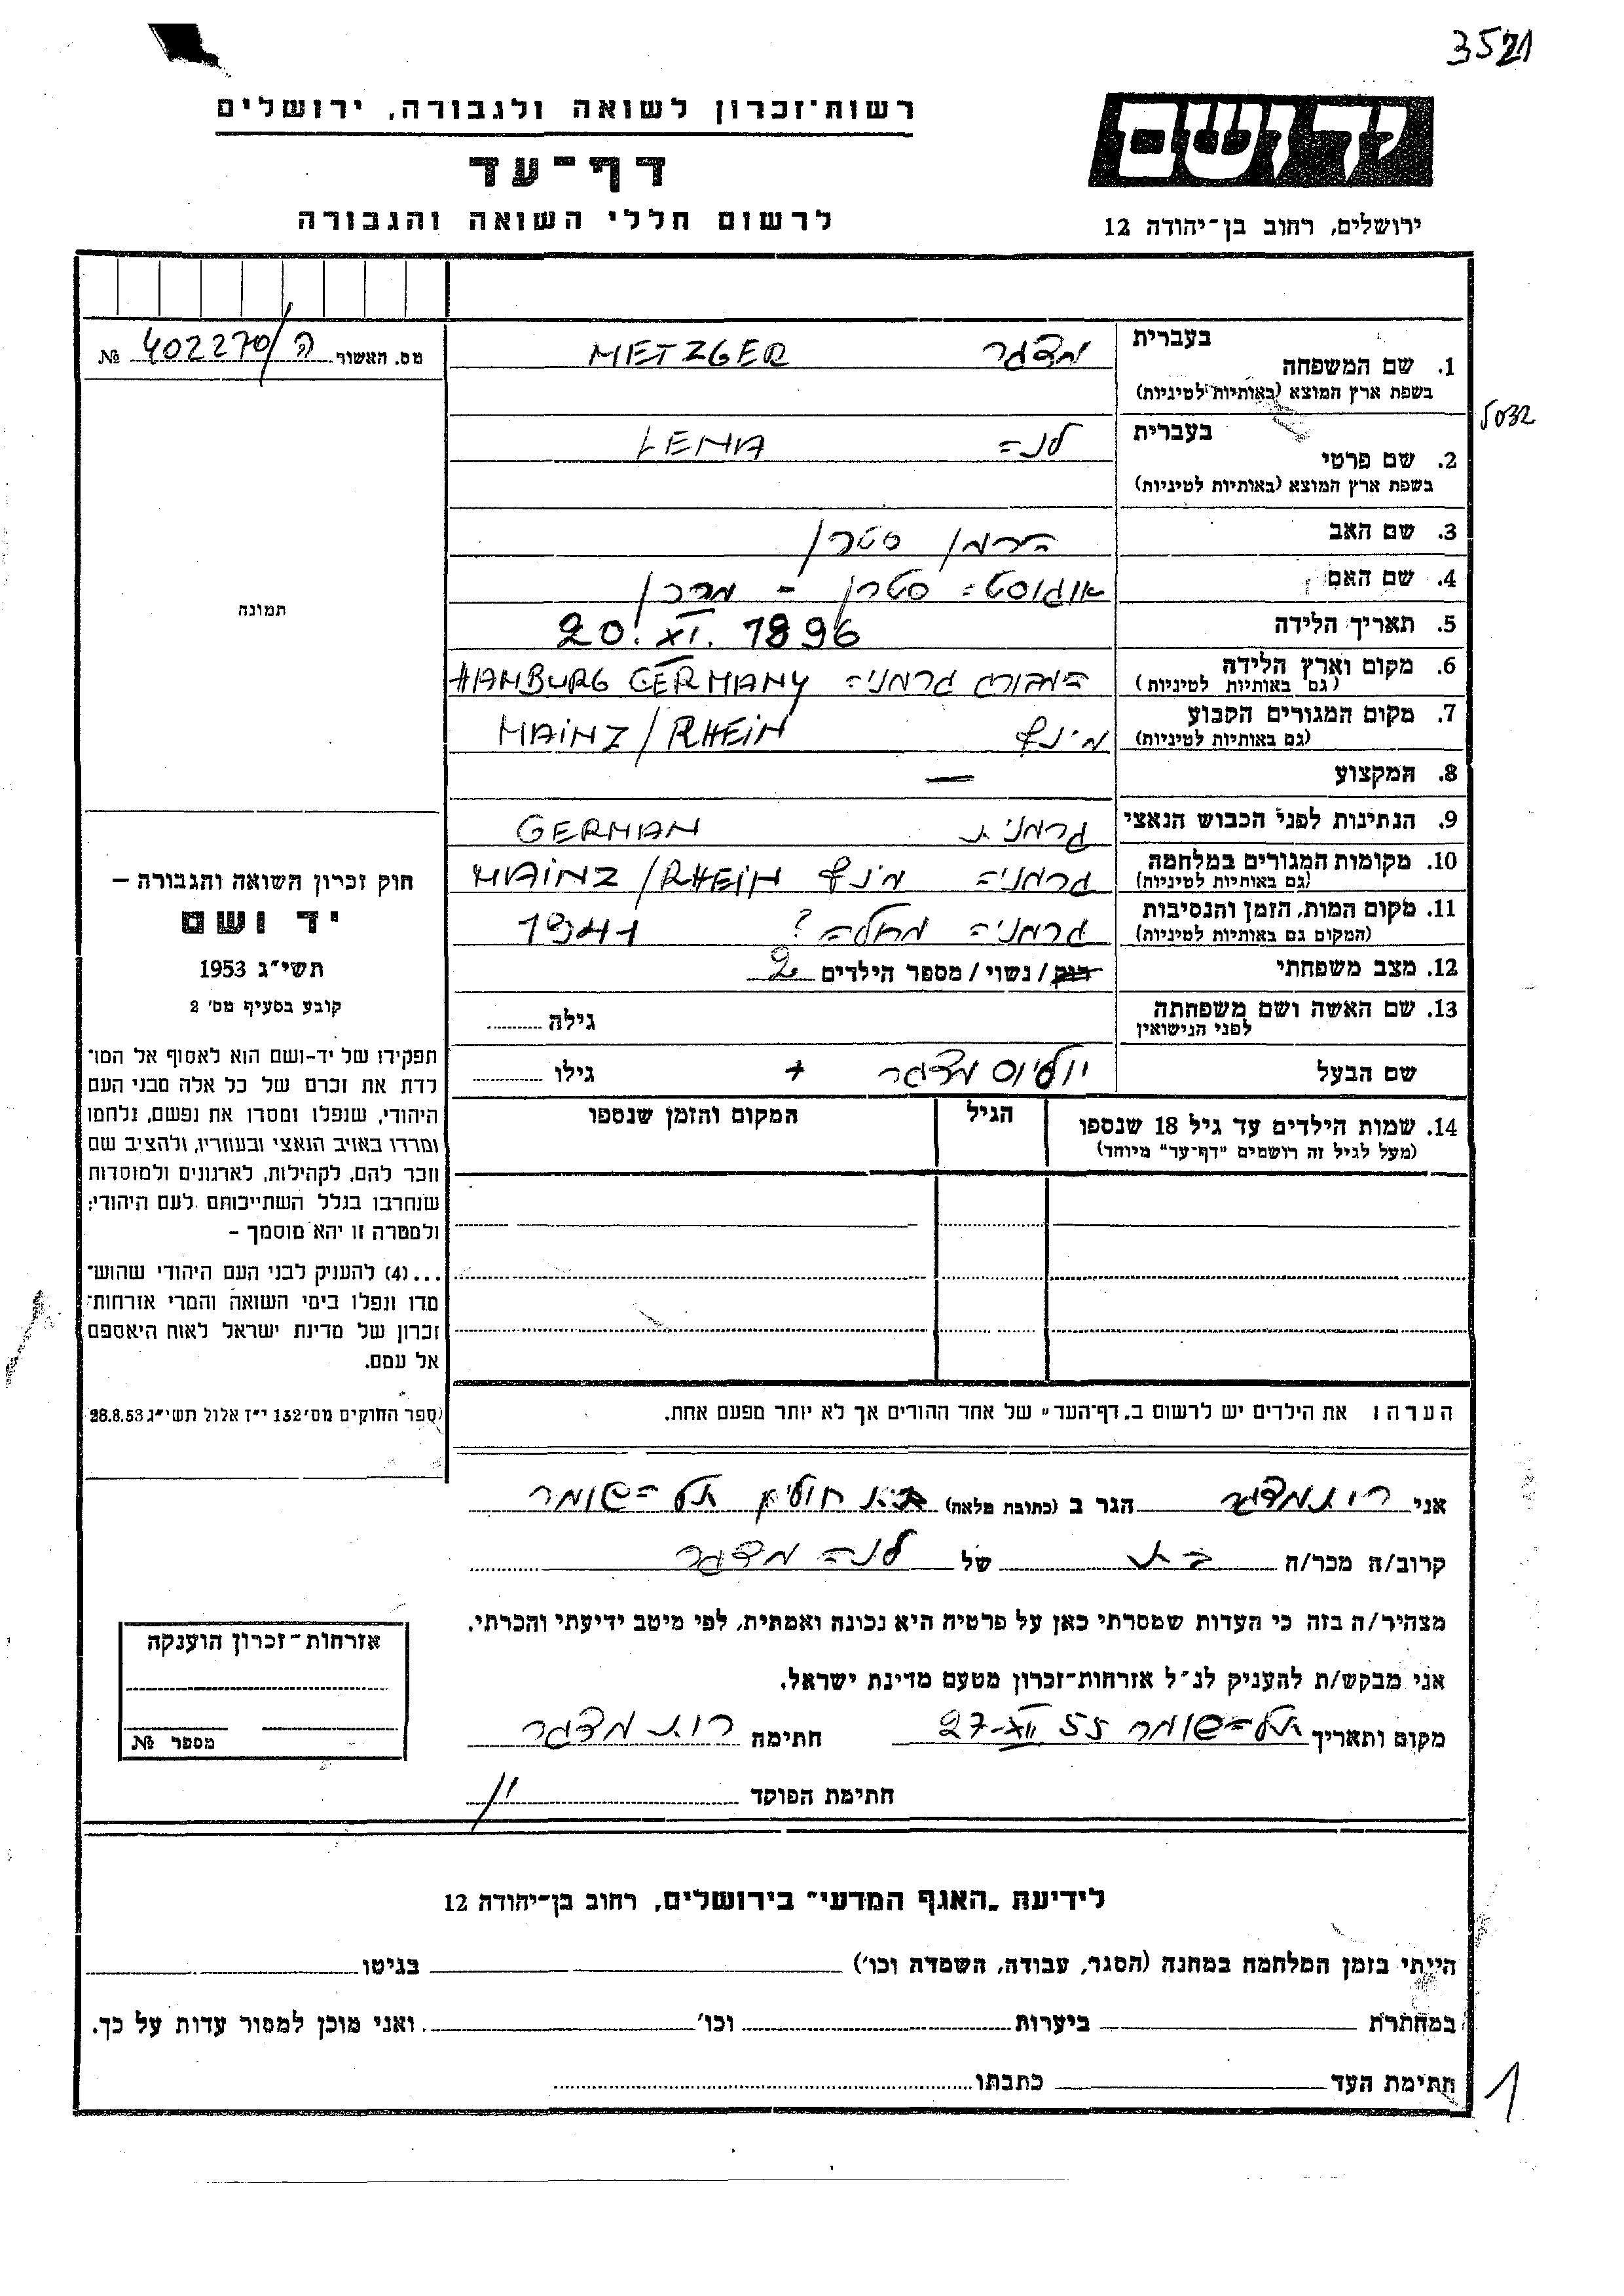 3521
רשות־זכרון לשואה ולגבורה, ירושלים
דף־עד
לרשום חללי השואה והגבורה
יד ושם
ירושלים, רחוב בן־יהודה 12
מס. האשור ה/402270 №
5032
בעברית
1. שם המשפחה מצגר METZGER
בשפת ארץ המוצא (באותיות לטיניות)
בעברית
2. שם פרטי לנה LENA
בשפת ארץ המוצא (באותיות לטיניות)
3. שם האב הרמן סטרן
4. שם האם אוגוסטה סטרן -
5. תאריך הלידה 20. XI. 1896
6. מקום וארץ הלידה המבורג גרמניה HAMBURG GERMANY
(גם באותיות לטיניות)
7. מקום המגורים הקבוע מינץ MAINZ/RHEIN
(גם באותיות לטיניות)
8. המקצוע —
9. הנתינות לפני הכבוש הנאצי גרמנית GERMAN
10. מקומות המגורים במלחמה גרמניה מינץ MAINZ/RHEIN
(גם באותיות לטיניות)
11. מקום המות, הזמן והנסיבות גרמניה מחלה? 1941
(המקום גם באותיות לטיניות)
12. מצב משפחתי רווק/נשוי/מספר הילדים 2
13. שם האשה ושם משפחתה גילה
לפני הנישואין
שם הבעל יוליוס מצגר + גילו
14. שמות הילדים עד גיל 18 שנספו הגיל המקום והזמן שנספו
(מעל לגיל זה רושמים "דף־עד" מיוחד)
הערה: את הילדים יש לרשום ב„דף־העד" של אחד ההורים אך לא יותר מפעם אחת.
תמונה
חוק זכרון השואה והגבורה –
יד ושם
תשי״ג 1953
קובע בסעיף מס׳ 2
תפקידו של יד-ושם הוא לאסוף אל המו־
לדת את זכרם של כל אלה מבני העם
היהודי, שנפלו ומסרו את נפשם, נלחמו
ומרדו באויב הנאצי ובעוזריו, ולהציב שם
וזכר להם, לקהילות, לארגונים ולמוסדות
שנחרבו בגלל השתייכותם לעם היהודי;
ולמטרה זו יהא מוסמך –
...(4) להעניק לבני העם היהודי שהוש־
מדו ונפלו בימי השואה והמרי אזרחות־
זכרון של מדינת ישראל לאות היאספם
אל עמם.
(ספר החוקים מס׳ 132 י״ז אלול תשי״ג 28.8.53
אני רות מצגר הגר ב (כתובת מלאה) בית חולים תל השומר
קרוב/ה מכר/ה בת של לנה מצגר
מצהיר/ה בזה כי העדות שמסרתי כאן על פרטיה היא נכונה ואמתית, לפי מיטב ידיעתי והכרתי.
אני מבקש/ת להעניק לנ״ל אזרחות־זכרון מטעם מדינת ישראל.
מקום ותאריך תל-השומר 27-XII 55 חתימה רות מצגר
חתימת הפוקד
אזרחות־זכרון הוענקה
מספר №
לידיעת „האגף המדעי" בירושלים, רחוב בן־יהודה 12
הייתי בזמן המלחמה במחנה (הסגר, עבודה, השמדה וכו׳) בגיטו
במחתרת ביערות וכו׳ ואני מוכן למסור עדות על כך.
חתימת העד כתבתו
1